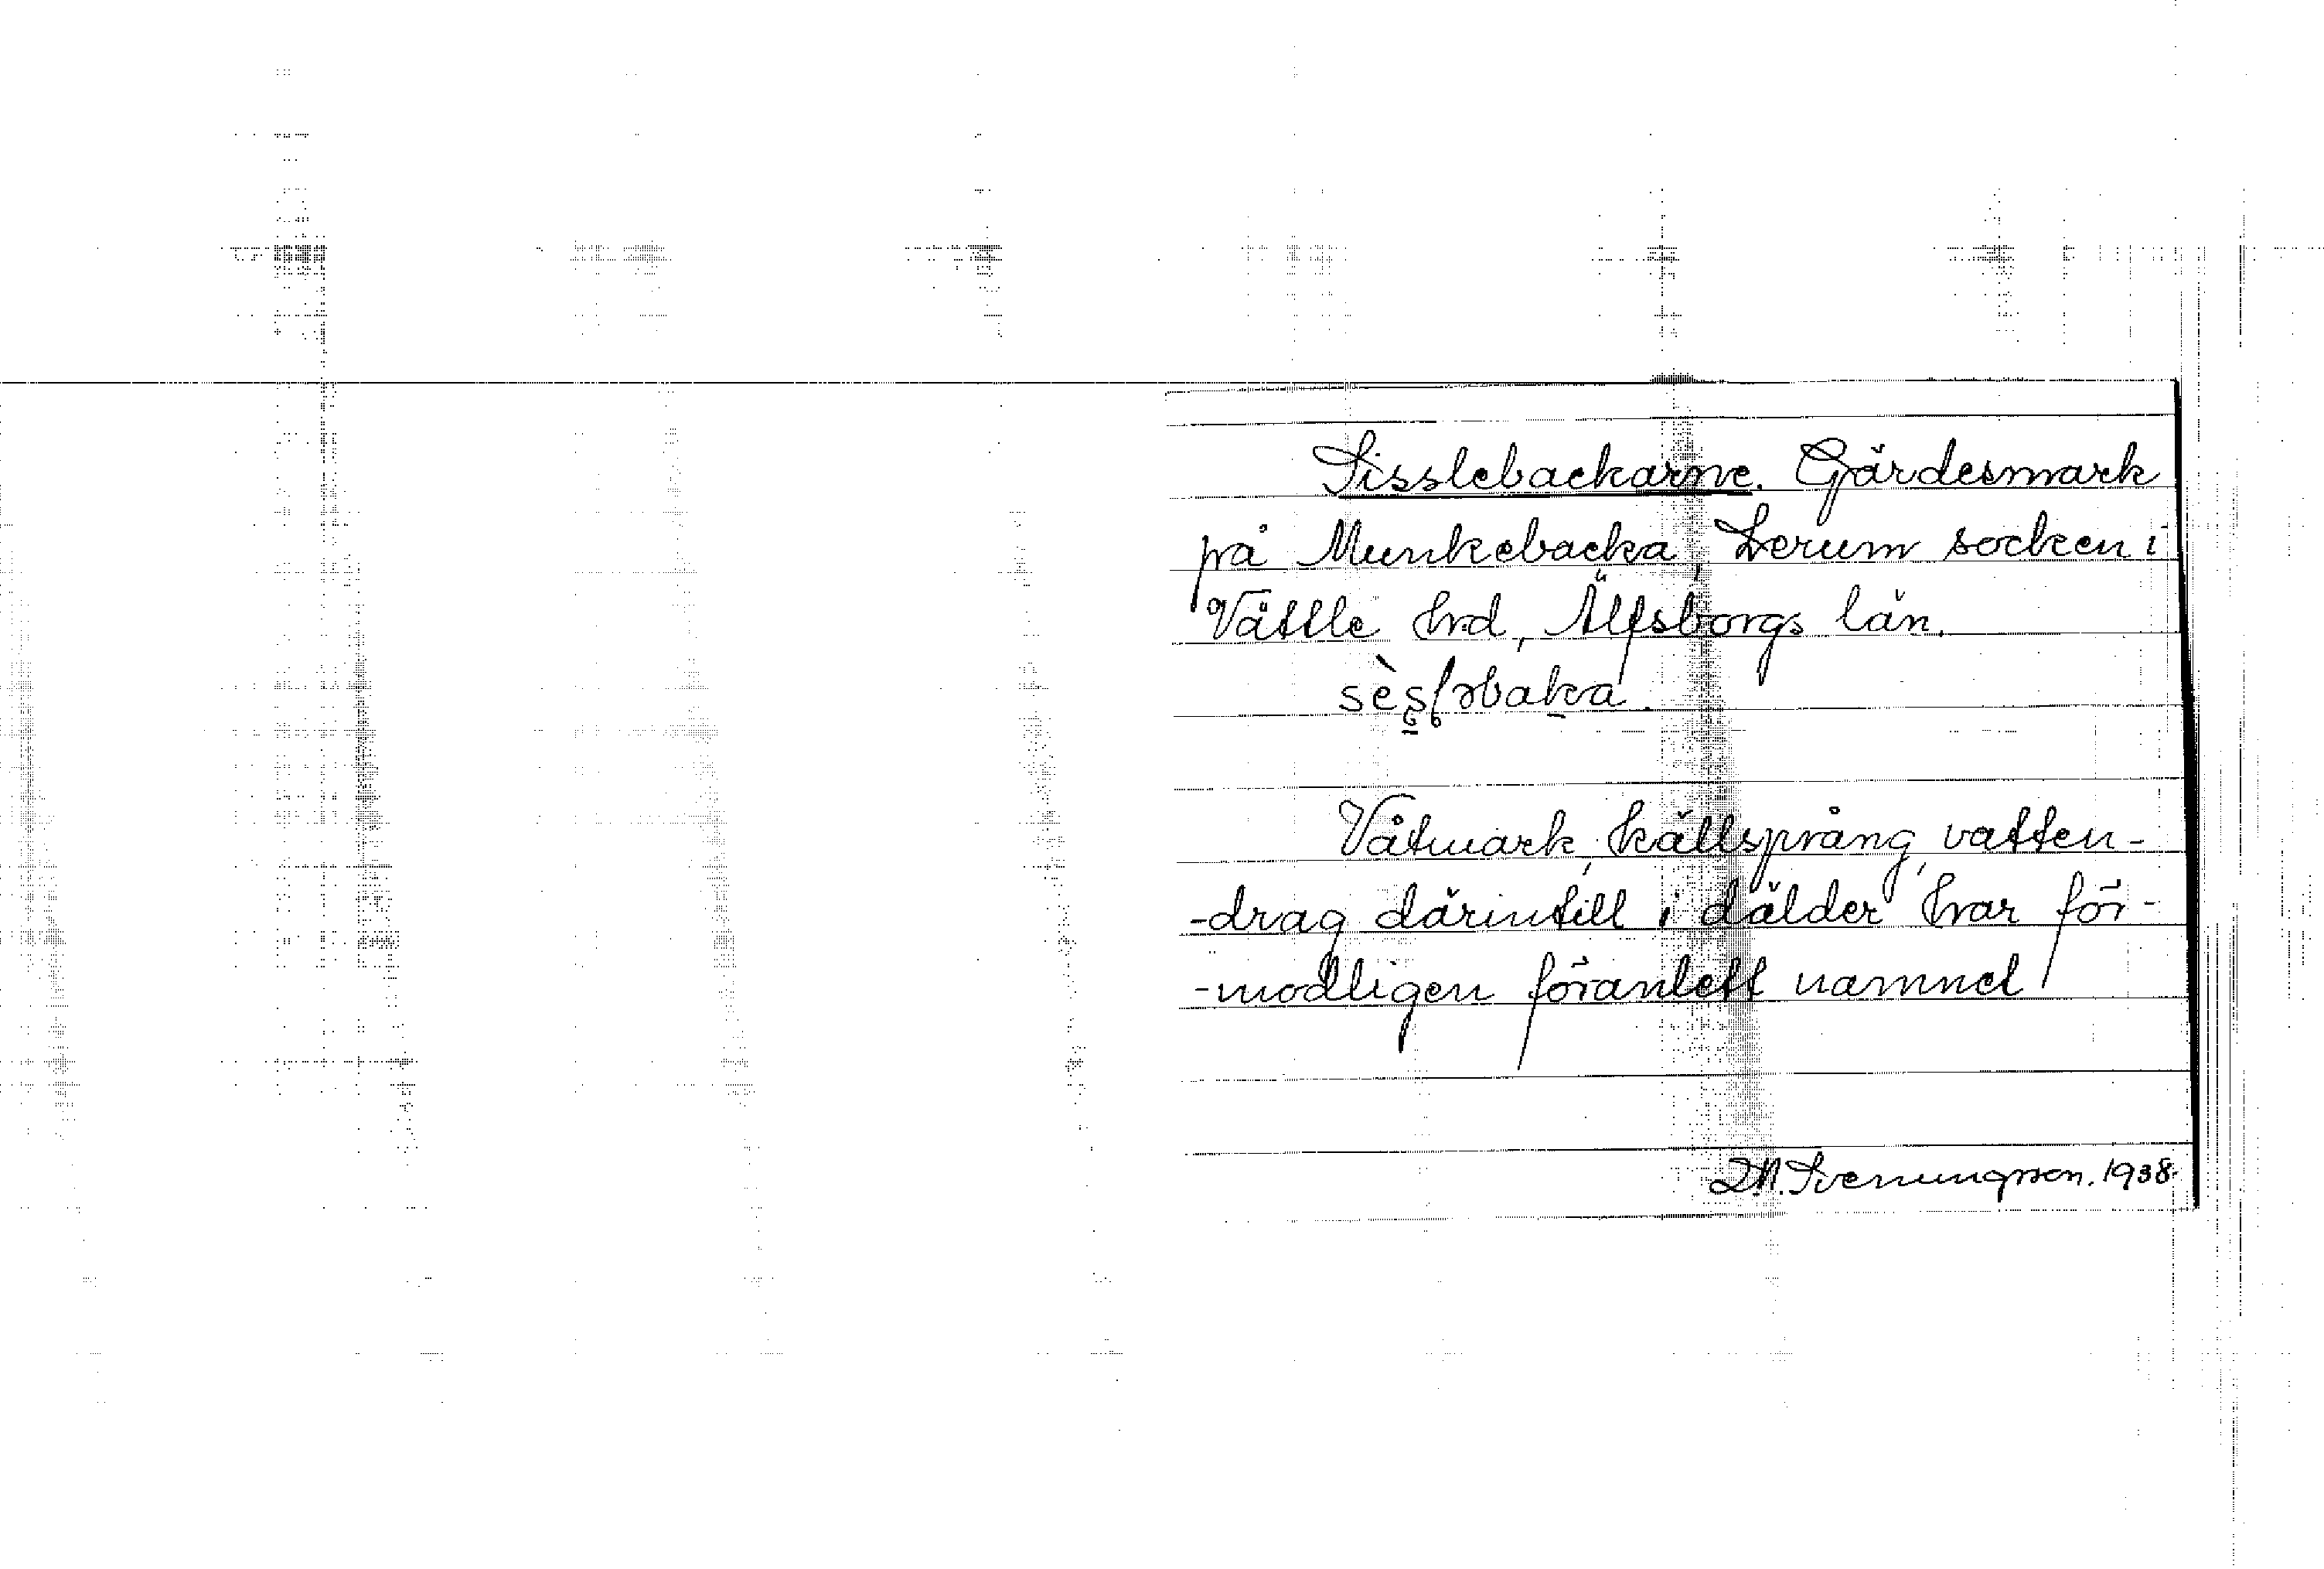 Sisslebackarne. Gärdesmark
på Munkebacka, Lerum socken i
Vättle hrd, Älfsborgs län.
Våtmark, källsprång, vatten-
-drag därintill i dälder har för-
-modligen föranlett namnet
D.N. Svenungsson. 1938